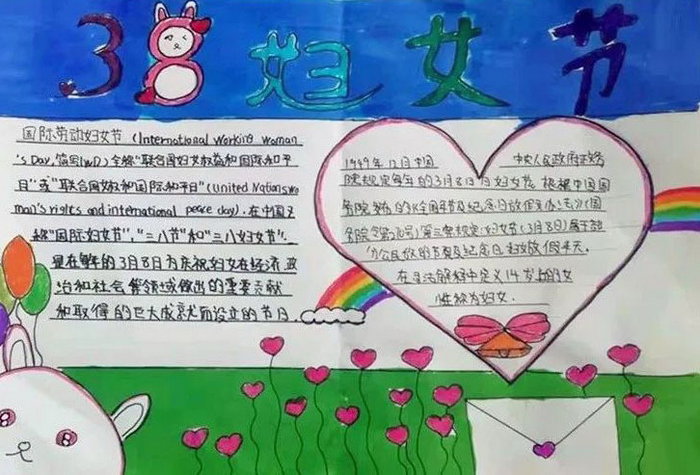 38妇女节
国际劳动妇女节 (International Working Woman
's Day, 简写IWD) 全称"联合国妇女权益和国际和平
日"或"联合国女权和国际和平日"(United Nations wo
man's rights and international peace day). 在中国又
称"国际妇女节"、"三八节"和"三八妇女节".
是在每年的3月8日为庆祝妇女在经济、政
治和社会等领域做出的重要贡献
和取得的巨大成就而设立的节日.
1949年12月中国 中央人民政府政务
院规定每年的3月8日为妇女节. 根据中国国
务院 发布的《全国年节及纪念日放假办法》(国
务院令第 号) 第三条规定:妇女节(3月8日)属于部
分公民放假的节日及纪念日 妇女放假半天.
在 法解释中定义14岁以上的女
性称为妇女.